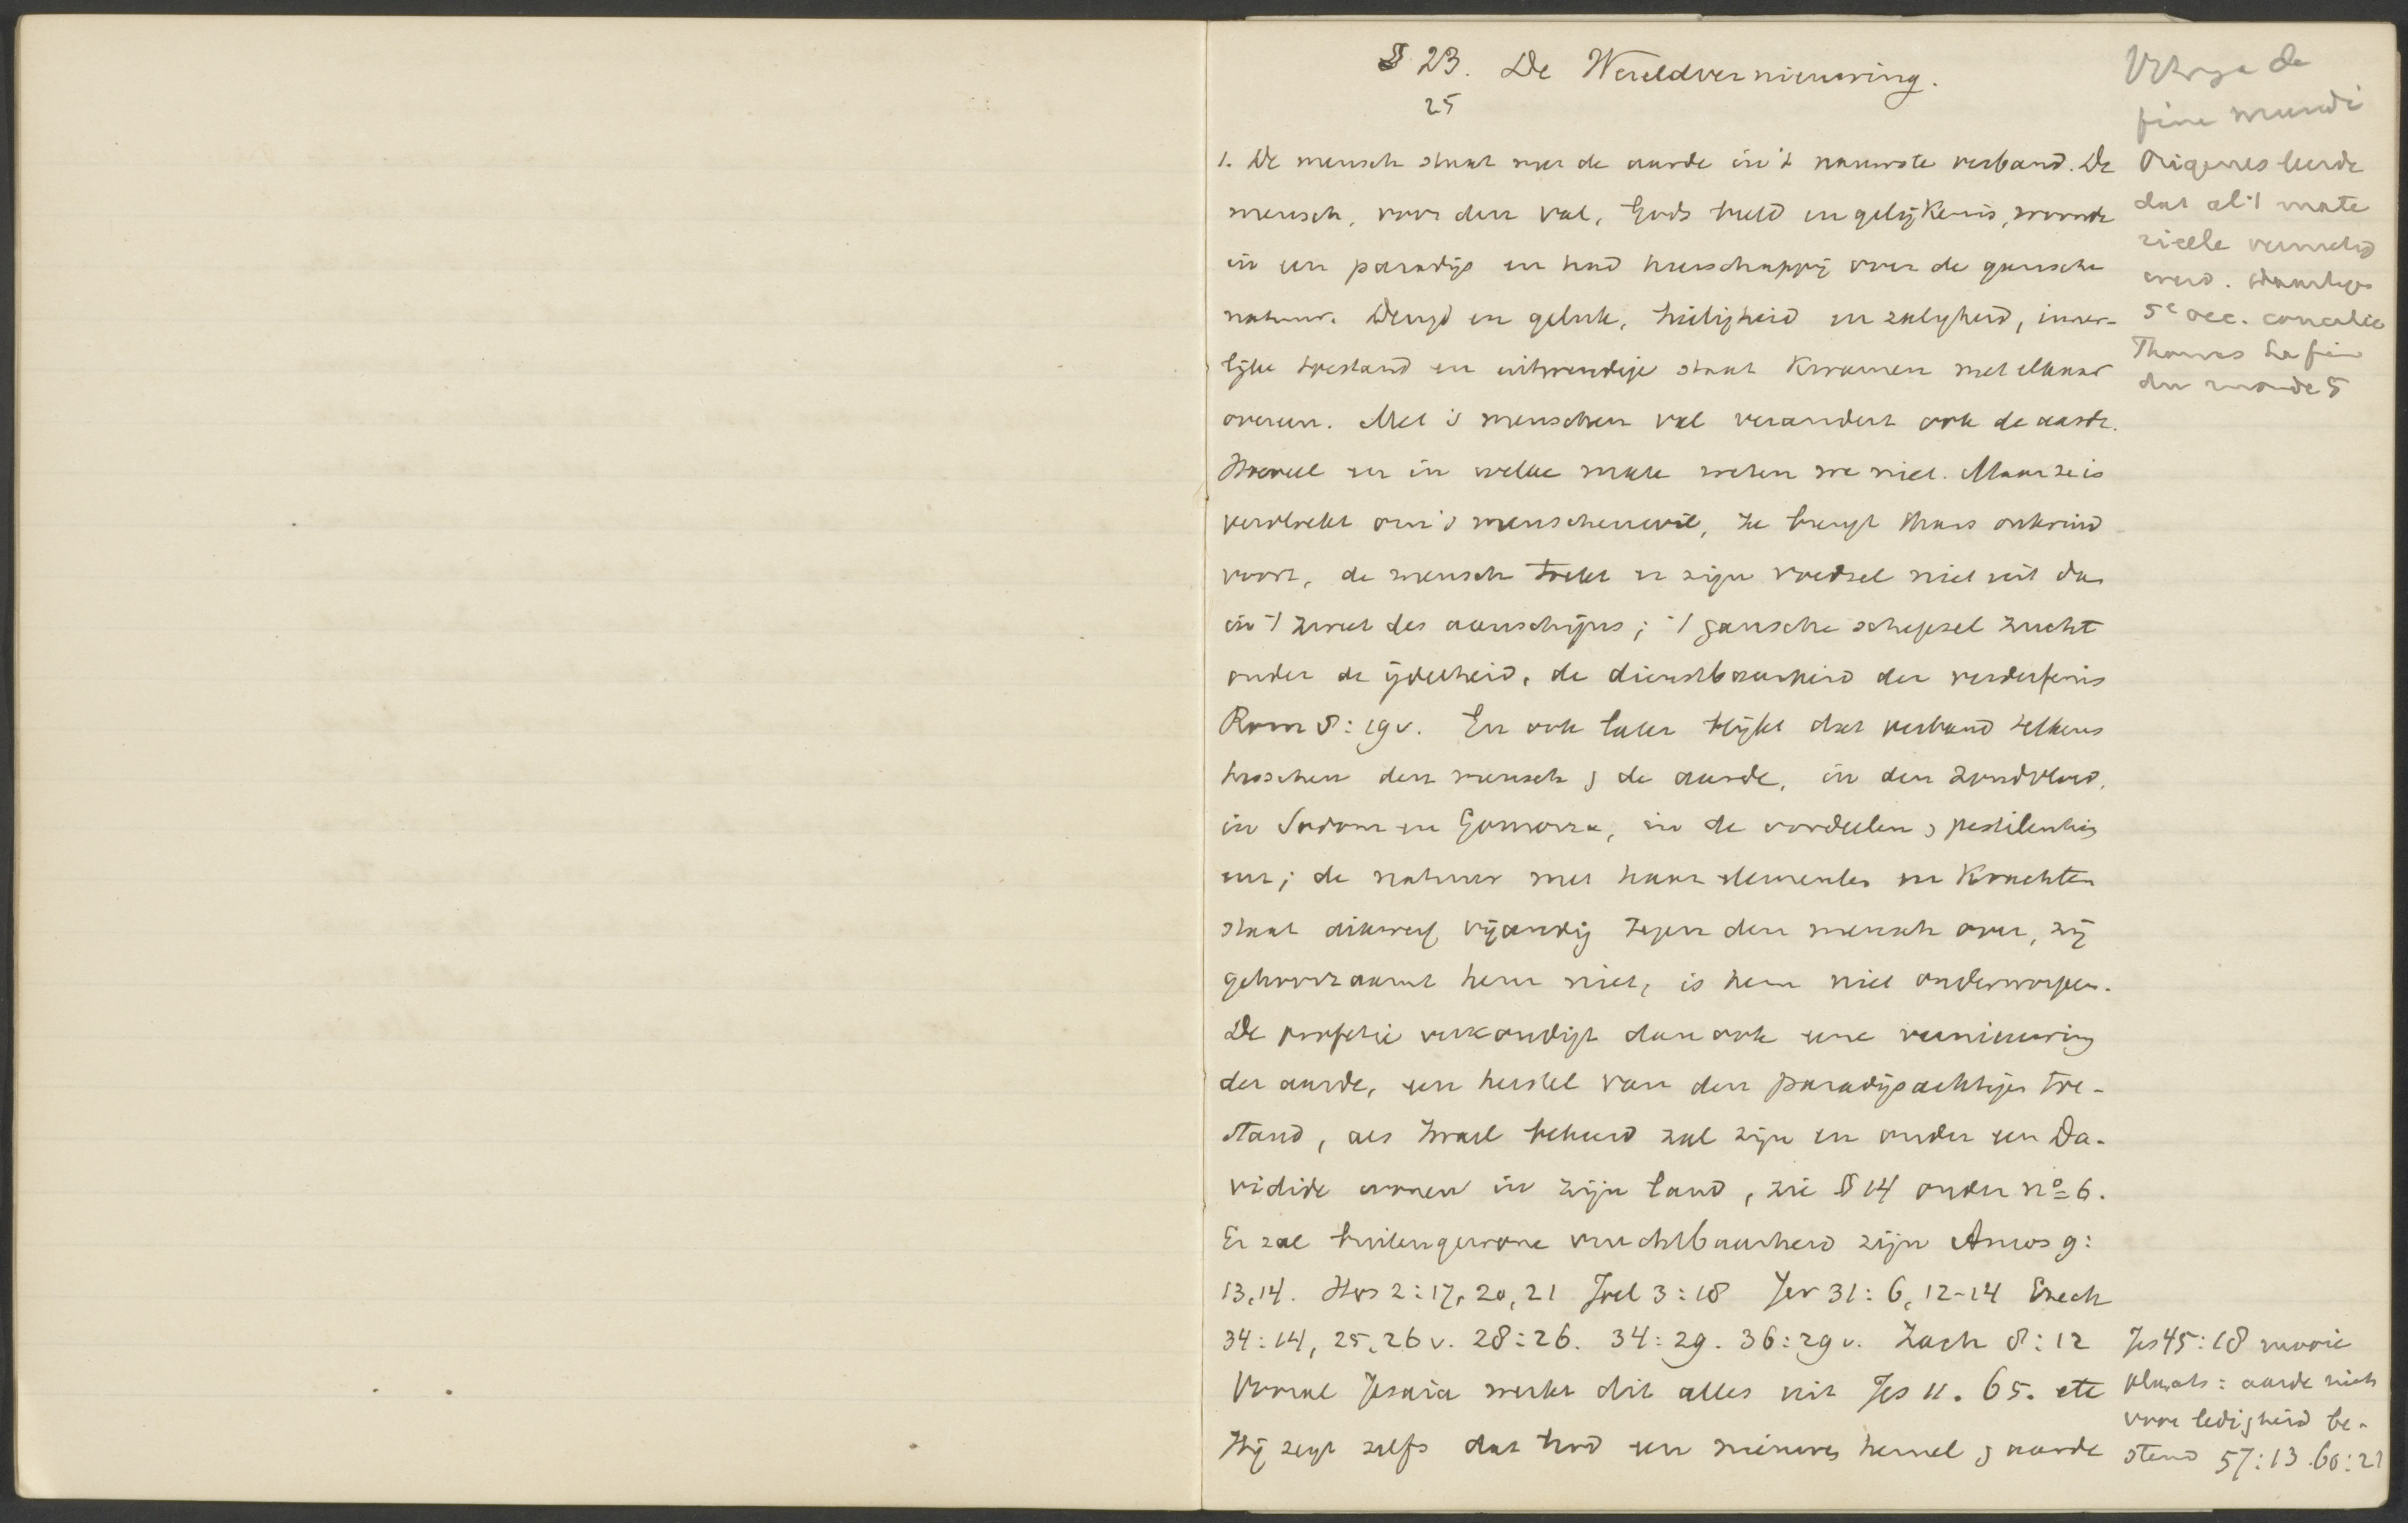 § 23. De Wereldvernieuwing.
25
1. De mensch staat met de aarde in 't nauwste verband. De
mensch, voor den val, Gods beeld en gelijkenis, woonde
in een paradijs en had heerschappij over de gansche
natuur. Deugd en geluk, heiligheid en zaligheid, inner-
lijke toestand en uitwendige staat kwamen met elkaar
overeen. Met 's menschen val verandert ook de aarde.
Hoeveel en in welke mate weten we niet. Maar ze is
vervloekt om 's menschen wil, ze brengt thans onkruid
voort, de mensch trekt er zijn voedsel niet uit dan
in 't zweet des aanschijns; 't gansche schepsel zucht
onder de ijdelheid, de dienstbaarheid der verderfenis
Rom 8:19v. En ook later blijkt dat verband telkens
tusschen den mensch & de aarde, in den zondvloed,
in Sodom en Gomorra, in de oordeelen & pestilentiën
enz; de natuur met haar elementen en krachten
staat dikwerf vijandig tegen den mensch over, zij
gehoorzaamt hem niet, is hem niet onderworpen.
De profetie verkondigt dan ook eene vernieuwing
der aarde, een herstel van den paradijsachtigen toe-
stand, als Israel bekeerd zal zijn en onder een Da-
vidide wonen in zijn land, zie § 14 onder no 6.
Er zal buitengewone vruchtbaarheid zijn Amos 9:
13,14. Hos 2:17, 20, 21 Joel 3:18 Jer 31:6, 12-14 Ezech
34:14, 25, 26v. 28:26. 34:29. 36:29v. Zach 8:12
Vooral Jesaia werkt dit alles uit Jes 11. 65. etc
Hij zegt zelfs dat God een nieuwen hemel & aarde
de
fine mundi
Origenes leerde
dat al 't mate
rieele vernietigd
werd.
5e oec. concilie
Thomas La fin
du monde 5
Jes 45:18 mooie
plaats: aarde niet
voor ledigheid be-
stemd 57:13. 60:21